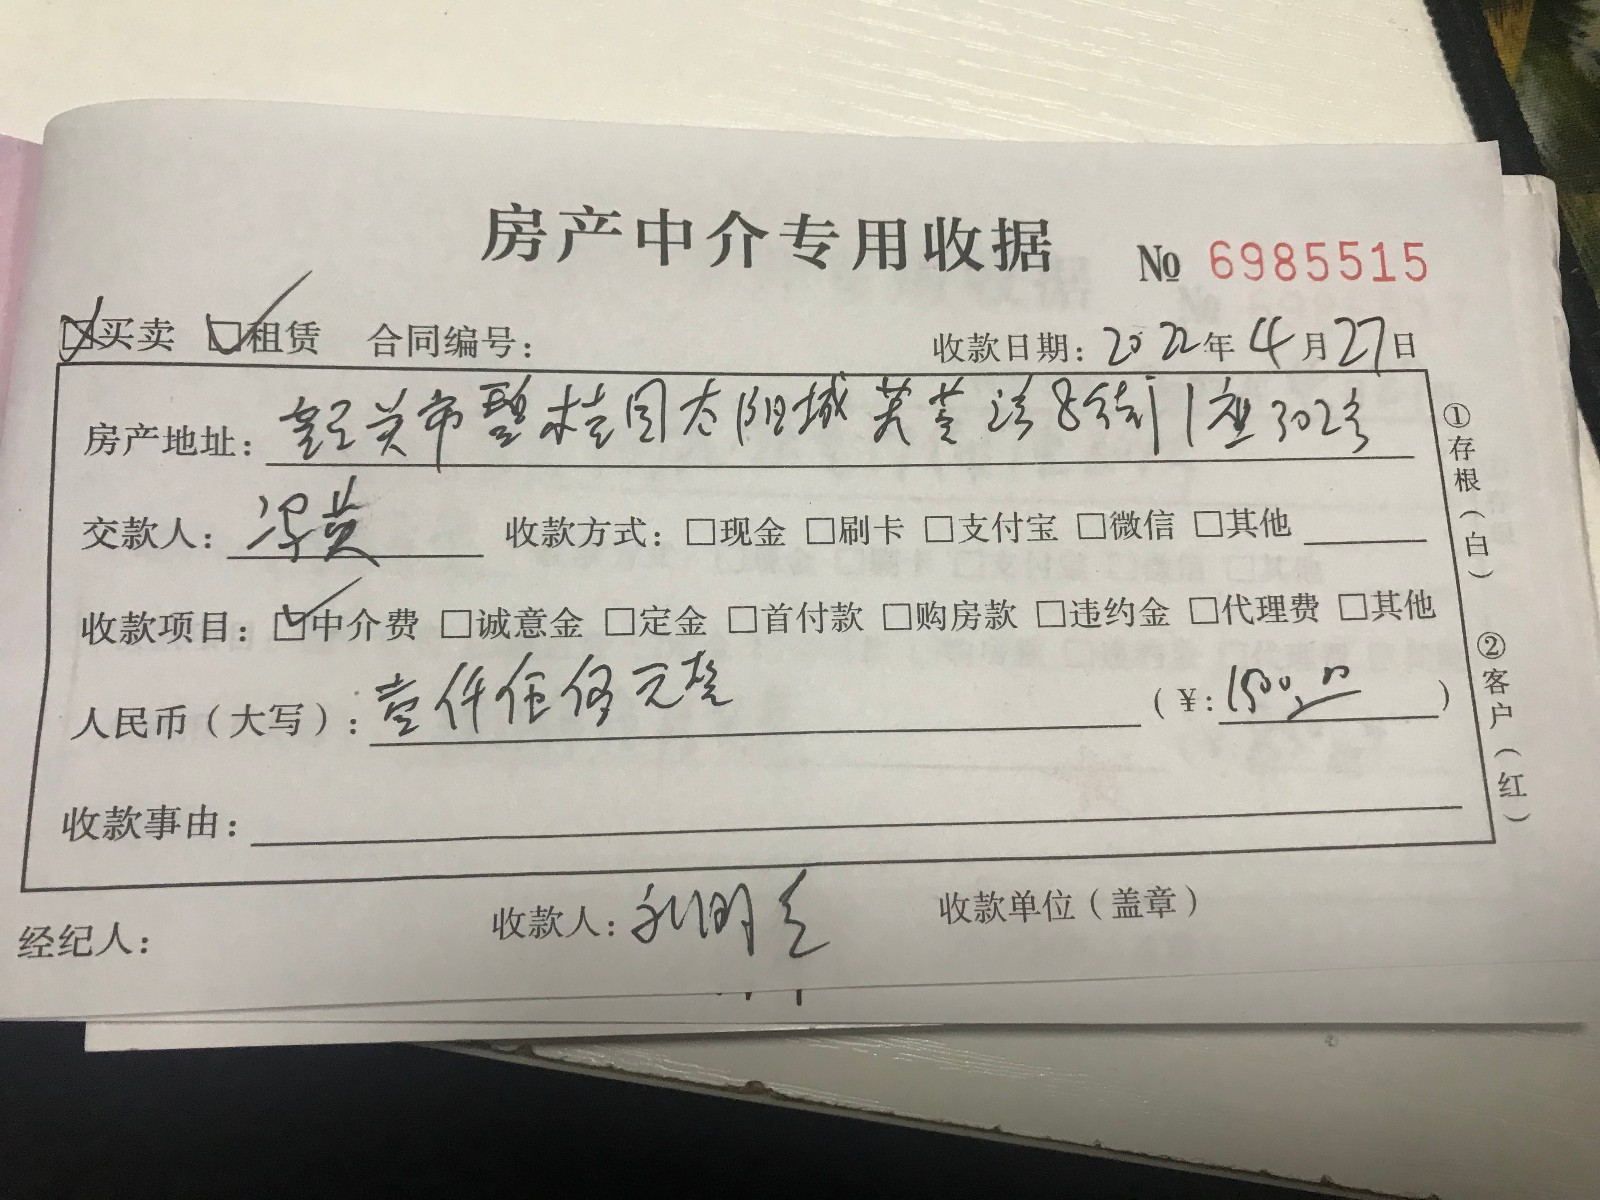 房产中介专用收据 № 6985515
☒买卖 ☑租赁 合同编号： 收款日期：2022年4月27日
房产地址：韶关市碧桂园太阳城芙蓉湾8街11座302号
交款人：冯黄 收款方式：□现金 □刷卡 □支付宝 □微信 □其他
收款项目：☑中介费 □诚意金 □定金 □首付款 □购房款 □违约金 □代理费 □其他
人民币（大写）：壹仟伍佰元整 （¥：1500.00）
收款事由：
经纪人： 收款人： 收款单位（盖章）
①存根（白）
②客户（红）